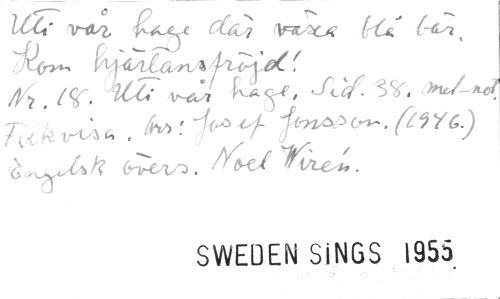 Uti vår hage där växa blå bär.
Kom hjärtansfröjd!
Nr. 18. Uti vår hage. Sid. 38. mel-not.
Folkvisa. Arr: Josef Jonsson. (1946.)
Engelsk övers. Noel Wirén.
SWEDEN SiNGS 1955